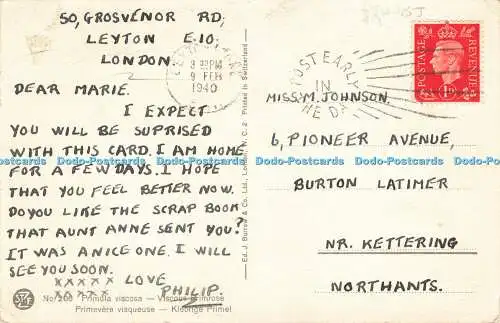 50, GROSVENOR RD,
LEYTON E.10.
LONDON.
DEAR MARIE.
I EXPECT
YOU WILL BE SUPRISED
WITH THIS CARD. I AM HOME
FOR A FEW DAYS. I HOPE
THAT YOU FEEL BETTER NOW.
DO YOU LIKE THE SCRAP BOOK
THAT AUNT ANNE SENT YOU?
IT WAS A NICE ONE. I WILL
SEE YOU SOON.
XXXXX LOVE
XXXXX PHILIP.
No. 266 Primula viscosa — Viscous primrose
Primevère visqueuse — Klebrige Primel
Ed. J. Burrow & Co. Ltd., London, W. C. 2 Printed in Switzerland
PM
9 FEB
1940
POST EARLY
IN
THE DAY
POSTAGE
REVENUE
1D
MISS. M. JOHNSON.
6, PIONEER AVENUE,
BURTON LATIMER
NR. KETTERING
NORTHANTS.
Dodo-Postcards Dodo-Postcards Dodo-Postcards Dodo-Postcards Dodo-Postcards